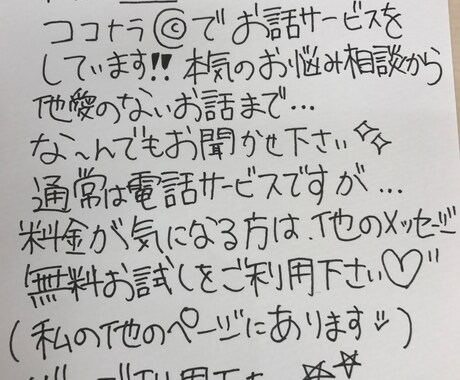 ココナラ©でお話サービスを
しています!! 本気のお悩み相談から
他愛のないお話まで...
な〜んでもお聞かせ下さい✨
通常は電話サービスですが...
料金が気になる方は、他のメッセージ
無料お試しをご利用下さい♡"
(私の他のページにあります♡)